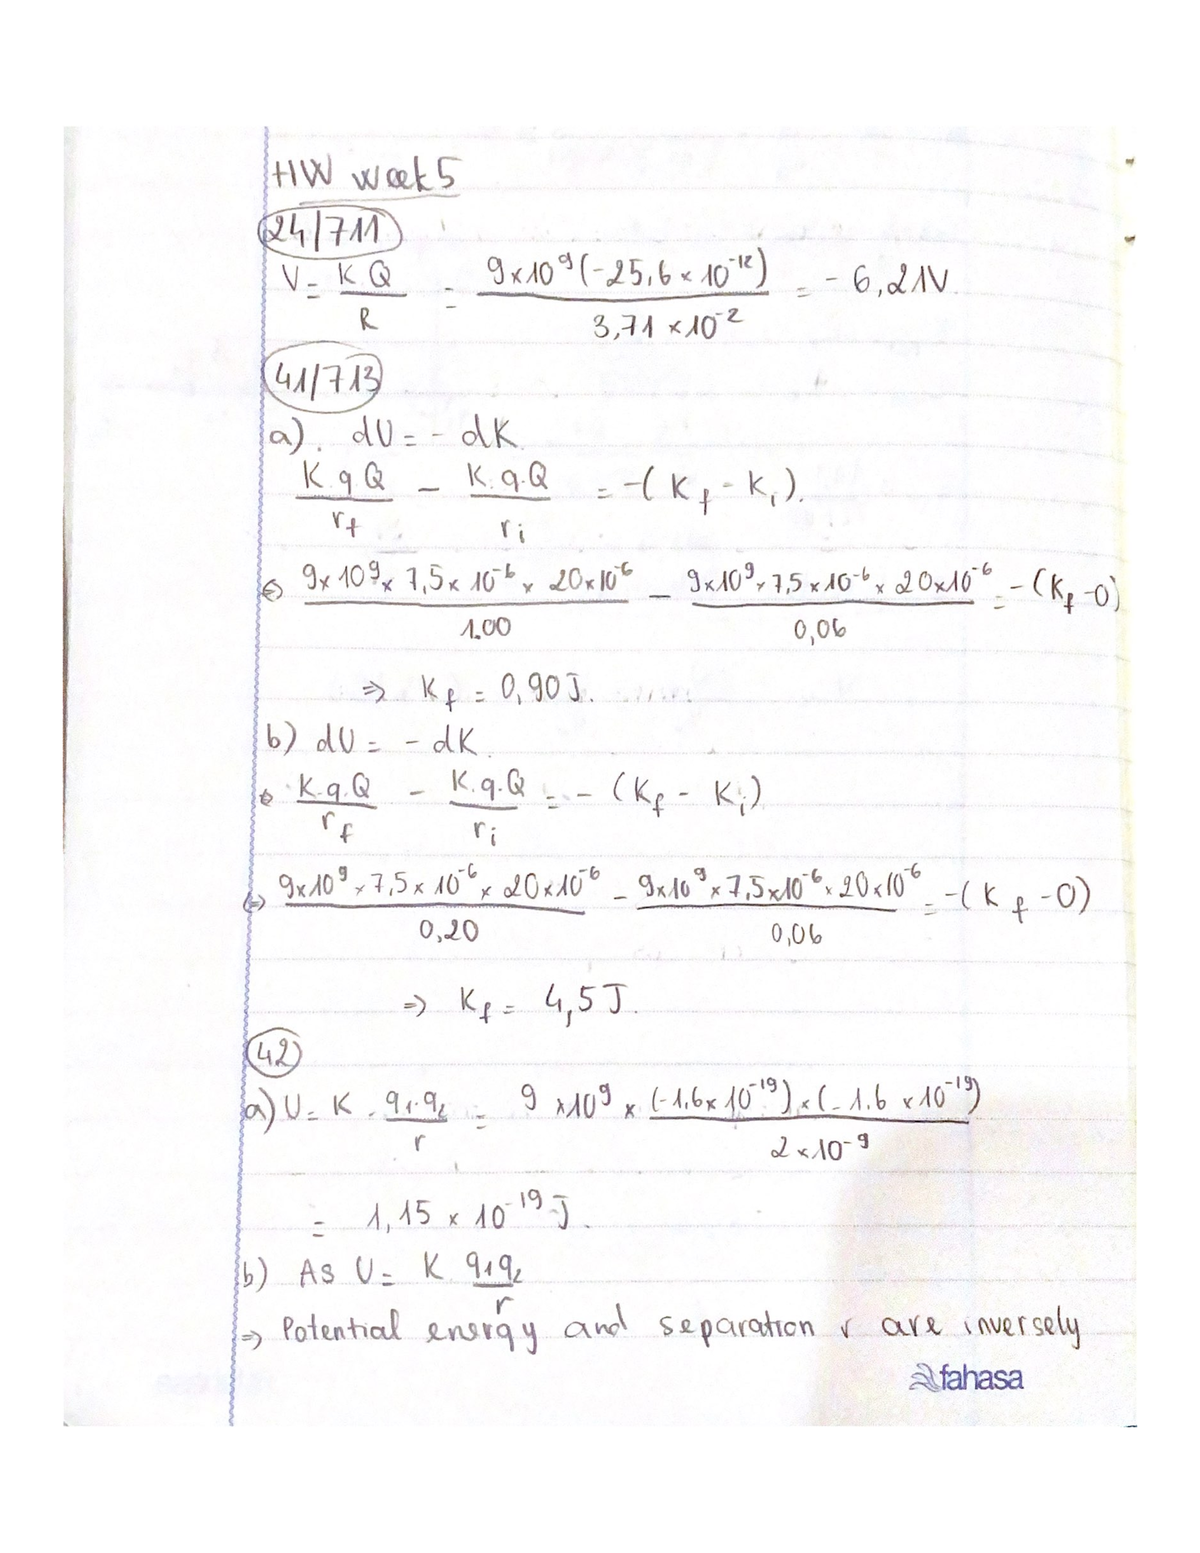 HW week 5
24/711
V = K.Q / R = 9x10^9 (-25,6 x 10^-12) / 3,71 x 10^-2 = - 6,21V
41/713
a). dU = - dK.
K.q.Q / r_f - K.q.Q / r_i = -( K_f - K_i ).
⇔ 9x10^9 x 7,5x 10^-6 x 20x10^-6 / 1.00 - 9x10^9 x 7,5x10^-6 x 20x10^-6 / 0,06 = -( K_f - 0)
⇒ K_f = 0,90J.
b) dU = - dK.
⇔ K.q.Q / r_f - K.q.Q / r_i = - (K_f - K_i)
⇔ 9x10^9 x 7,5x 10^-6 x 20x10^-6 / 0,20 - 9x10^9 x 7,5x10^-6 x 20x10^-6 / 0,06 = -( K_f - 0)
⇒ K_f = 4,5J.
42
a) U = K . q1.q2 / r = 9 x10^9 x (-1.6x 10^-19) x (- 1.6 x 10^-19) / 2 x 10^-9
= 1,15 x 10^-19 J.
b) As U = K q1q2 / r
⇒ Potential energy and separation r are inversely
fahasa